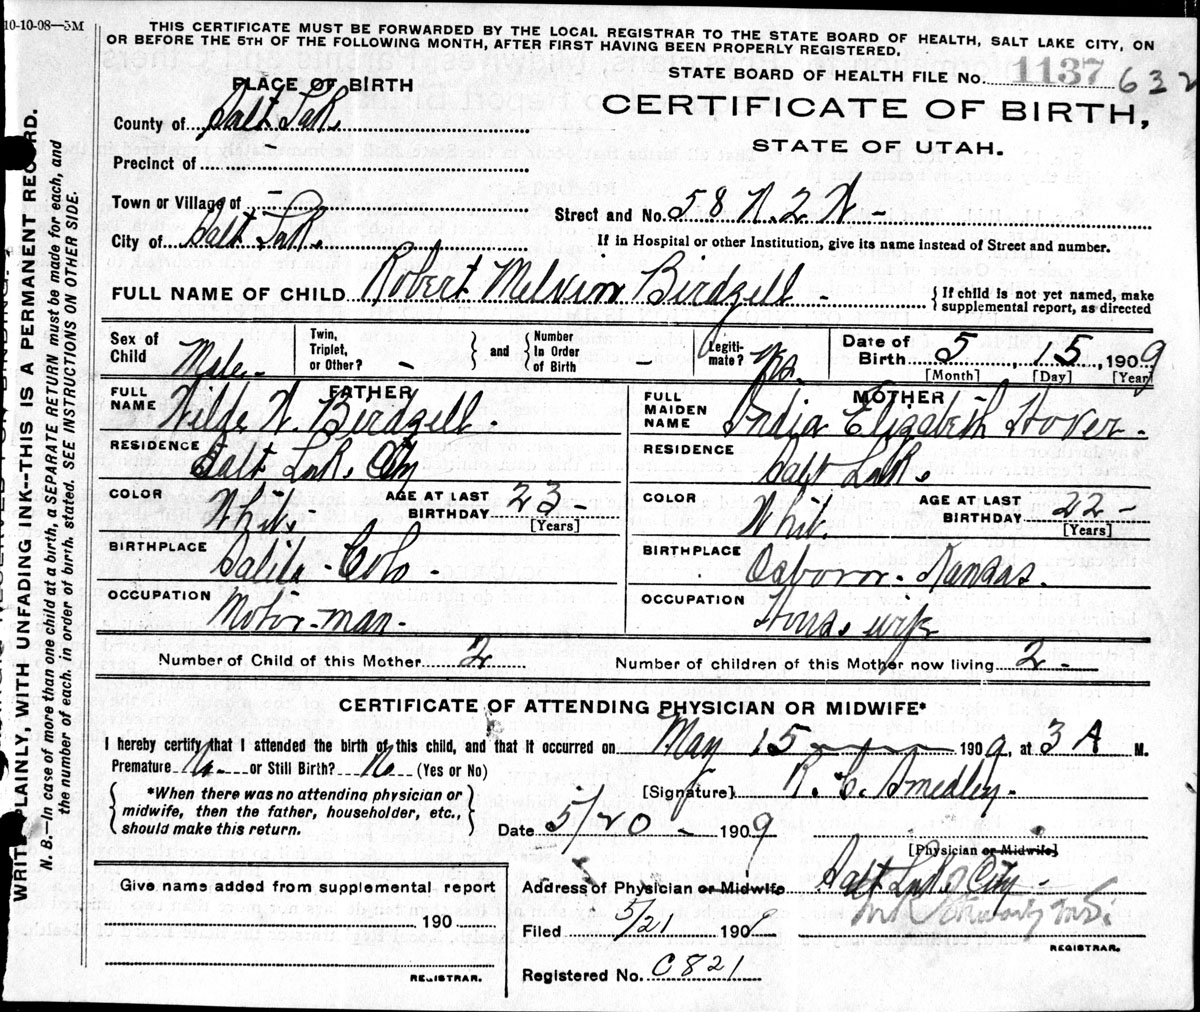 10-10-08—5M
THIS CERTIFICATE MUST BE FORWARDED BY THE LOCAL REGISTRAR TO THE STATE BOARD OF HEALTH, SALT LAKE CITY, ON
OR BEFORE THE 5TH OF THE FOLLOWING MONTH, AFTER FIRST HAVING BEEN PROPERLY REGISTERED.
STATE BOARD OF HEALTH FILE No. 1137 632
PLACE OF BIRTH
CERTIFICATE OF BIRTH,
STATE OF UTAH.
County of Salt Lake
Precinct of -
Town or Village of -
Street and No. 58 N. 2 W -
City of Salt Lake
If in Hospital or other Institution, give its name instead of Street and number.
FULL NAME OF CHILD Robert Melvin Birdzell - {If child is not yet named, make
supplemental report, as directed
Sex of Child Male -
Twin, Triplet, or Other? - } and { Number In Order of Birth
Legitimate? Yes.
Date of Birth 5, 15, 1909
[Month] [Day] [Year]
FATHER
FULL NAME Wilde W. Birdzell -
RESIDENCE Salt Lake City
COLOR White
AGE AT LAST BIRTHDAY 23 -
[Years]
BIRTHPLACE Salida - Colo -
OCCUPATION Motor-man -
MOTHER
FULL MAIDEN NAME India Elizabeth Hover -
RESIDENCE Salt Lake
COLOR White
AGE AT LAST BIRTHDAY 22 -
[Years]
BIRTHPLACE Osborne - Kansas.
OCCUPATION House wife
Number of Child of this Mother 2
Number of children of this Mother now living 2 -
CERTIFICATE OF ATTENDING PHYSICIAN OR MIDWIFE*
I hereby certify that I attended the birth of this child, and that it occurred on May 15 1909, at 3 A M.
Premature No or Still Birth? No (Yes or No)
*When there was no attending physician or
midwife, then the father, householder, etc.,
should make this return.
[Signature] R. C. Smedley -
Date 5/20 - 1909
[Physician or Midwife]
Address of Physician or Midwife Salt Lake City -
Give name added from supplemental report
190
REGISTRAR.
Filed 5/21 1909
REGISTRAR.
Registered No. C821
WRITE PLAINLY, WITH UNFADING INK—THIS IS A PERMANENT RECORD.
N. B.—In case of more than one child at a birth, a SEPARATE RETURN must be made for each, and
the number of each, in order of birth, stated. SEE INSTRUCTIONS ON OTHER SIDE.